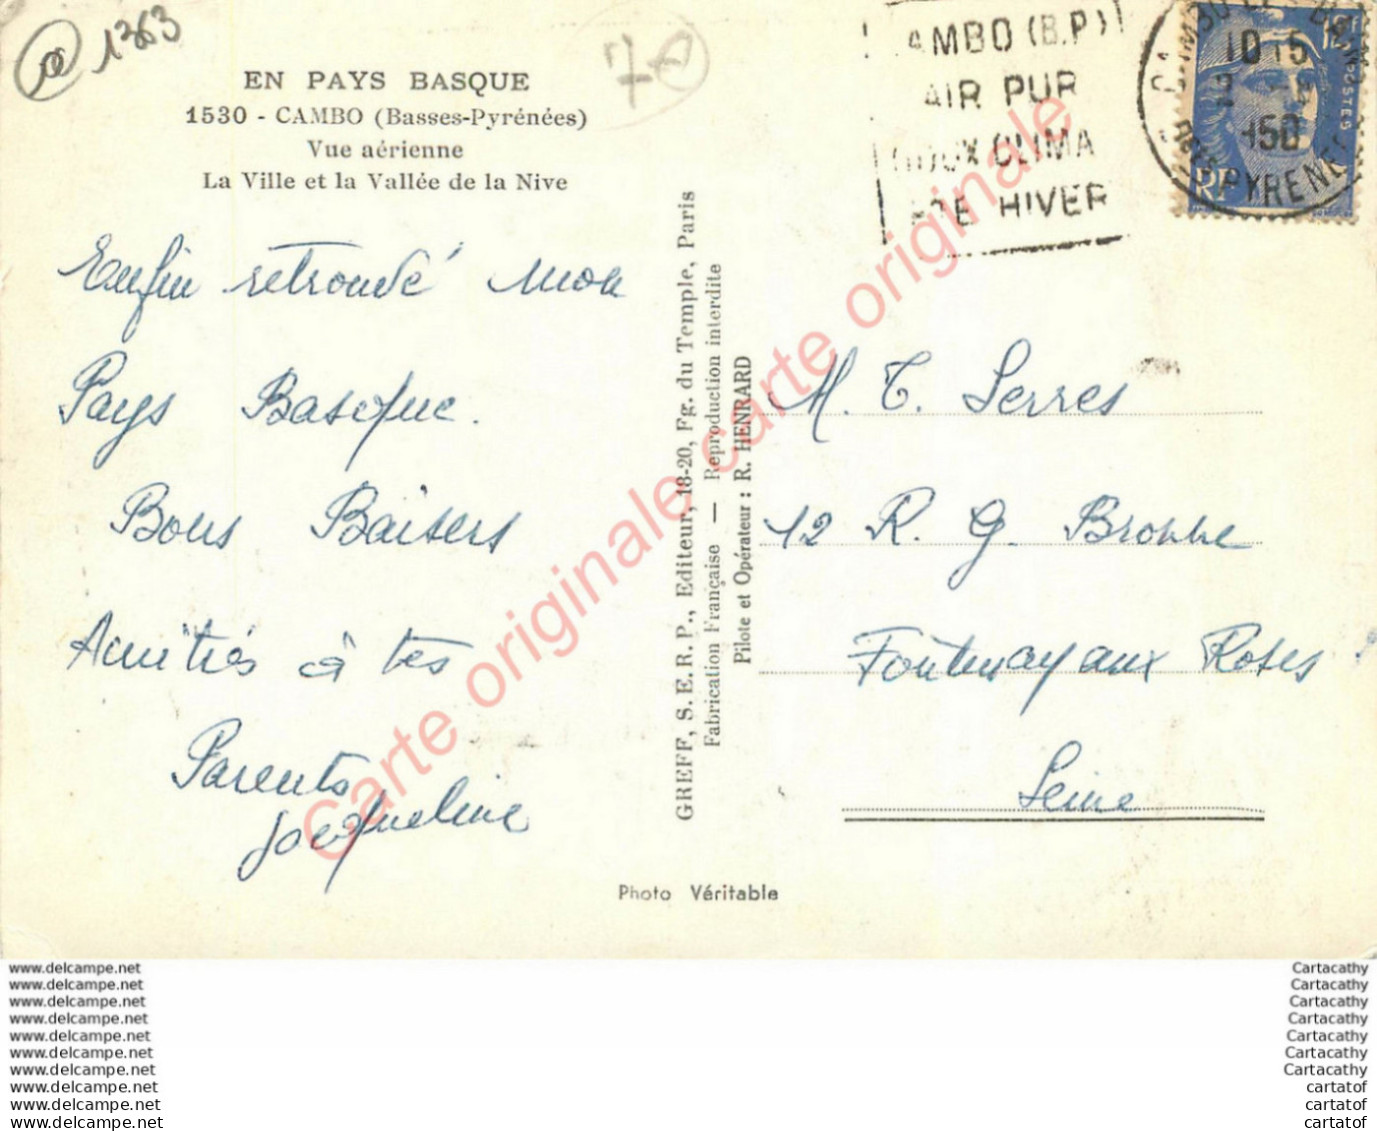 1363
EN PAYS BASQUE
1530 - CAMBO (Basses-Pyrénées)
Vue aérienne
La Ville et la Vallée de la Nive
Enfin retrouvé mon
Pays Basque.
Bons Baisers
Amitiés à tes
Parents
Jacqueline
GREFF, S. E. R. P., Editeur, 18-20, Fg. du Temple, Paris
Fabrication Française — Reproduction interdite
Pilote et Opérateur : R. HENRARD
Photo Véritable
AMBO (B.P)
AIR PUR
DOUX CLIMA
HIVER
10 15
1950
PYRENEES
POSTES
RF
M. T. Serres
12 R. G. Bronne
Fontenay aux Roses
Seine
Carte originale carte originale
www.delcampe.net
www.delcampe.net
www.delcampe.net
www.delcampe.net
www.delcampe.net
www.delcampe.net
www.delcampe.net
www.delcampe.net
www.delcampe.net
www.delcampe.net
Cartacathy
Cartacathy
Cartacathy
Cartacathy
Cartacathy
Cartacathy
Cartacathy
cartatof
cartatof
cartatof